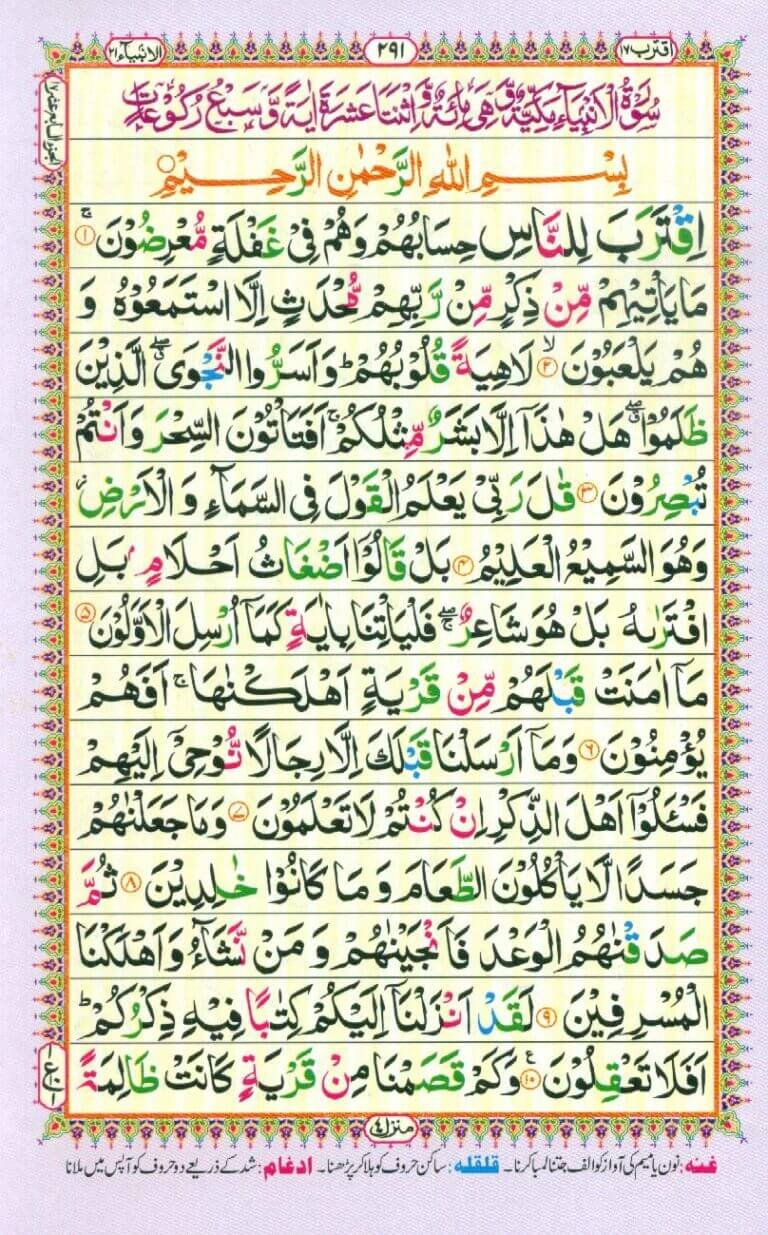 اقترب ١٧
٢٩١
الانبیآء ٢١
سُوْرَةُ الْاَنْۢبِيَآءِ مَكِّيَّةٌ وَّ هِیَ مِائَةٌ وَّ اثْنَتَا عَشْرَةَ اٰيَةً وَّ سَبْعُ رُكُوْعَاتٍ
بِسْمِ اللّٰهِ الرَّحْمٰنِ الرَّحِيْمِ
اِقْتَرَبَ لِلنَّاسِ حِسَابُهُمْ وَهُمْ فِیْ غَفْلَةٍ مُّعْرِضُوْنَ ۚ ﴿١﴾
مَا يَاْتِيْهِمْ مِّنْ ذِكْرٍ مِّنْ رَّبِّهِمْ مُّحْدَثٍ اِلَّا اسْتَمَعُوْهُ وَ
هُمْ يَلْعَبُوْنَ ۙ ﴿٢﴾ لَاهِيَةً قُلُوْبُهُمْ ؕ وَ اَسَرُّوا النَّجْوَى ۖۗ الَّذِيْنَ
ظَلَمُوْا ۖۗ هَلْ هٰذَاۤ اِلَّا بَشَرٌ مِّثْلُكُمْ ۚ اَفَتَاْتُوْنَ السِّحْرَ وَ اَنْتُمْ
تُبْصِرُوْنَ ﴿٣﴾ قٰلَ رَبِّیْ يَعْلَمُ الْقَوْلَ فِی السَّمَآءِ وَ الْاَرْضِ ؗ
وَهُوَ السَّمِيْعُ الْعَلِيْمُ ﴿٤﴾ بَلْ قَالُوْۤا اَضْغَاثُ اَحْلَامٍۭ بَلِ
افْتَرٰىهُ بَلْ هُوَ شَاعِرٌ ۖۚ فَلْيَاْتِنَا بِاٰيَةٍ كَمَاۤ اُرْسِلَ الْاَوَّلُوْنَ ﴿٥﴾
مَاۤ اٰمَنَتْ قَبْلَهُمْ مِّنْ قَرْيَةٍ اَهْلَكْنٰهَا ۚ اَفَهُمْ
يُؤْمِنُوْنَ ﴿٦﴾ وَمَاۤ اَرْسَلْنَا قَبْلَكَ اِلَّا رِجَالًا نُّوْحِیْۤ اِلَيْهِمْ
فَسْـَٔلُوْۤا اَهْلَ الذِّكْرِ اِنْ كُنْتُمْ لَا تَعْلَمُوْنَ ﴿٧﴾ وَمَا جَعَلْنٰهُمْ
جَسَدًا لَّا يَاْكُلُوْنَ الطَّعَامَ وَ مَا كَانُوْا خٰلِدِيْنَ ﴿٨﴾ ثُمَّ
صَدَقْنٰهُمُ الْوَعْدَ فَاَنْجَيْنٰهُمْ وَ مَنْ نَّشَآءُ وَ اَهْلَكْنَا
الْمُسْرِفِيْنَ ﴿٩﴾ لَقَدْ اَنْزَلْنَاۤ اِلَيْكُمْ كِتٰبًا فِيْهِ ذِكْرُكُمْ ؕ
اَفَلَا تَعْقِلُوْنَ ۧ ﴿١٠﴾ وَكَمْ قَصَمْنَا مِنْ قَرْيَةٍ كَانَتْ ظَالِمَةً
منزل ٤
غنہ: نون یا میم کی آواز کو الف جتنا لمبا کرنا۔ قلقلہ: ساکن حروف کو ہلا کر پڑھنا۔ ادغام: شد کے ذریعے دو حروف کو آپس میں ملانا